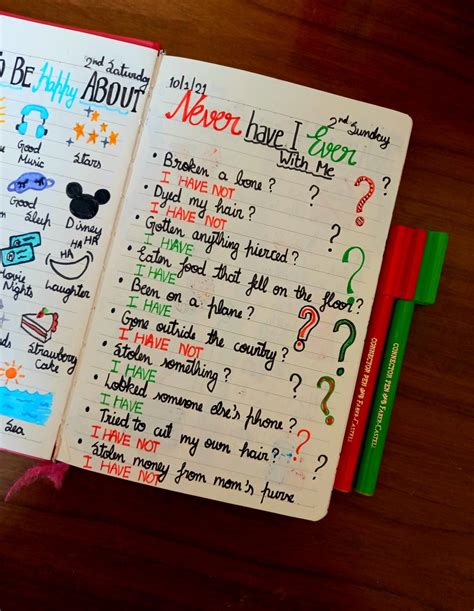 2nd Saturday
O BE Happy ABOUT
Good Music
Stars
Good Sleep
HA HA HA
Movie Nights
Laughter
Strawberry Cake
Sea
10/1/21
2nd Sunday
Never have I Ever
With Me
• Broken a bone?
I HAVE NOT
• Dyed my hair?
I HAVE NOT
• Gotten anything pierced?
I HAVE
• Eaten food that fell on the floor?
I HAVE
• Been on a plane?
I HAVE
• Gone outside the country?
I HAVE NOT
• Stolen something?
I HAVE
• Looked someone else's phone?
I HAVE
• Tried to cut my own hair?
I HAVE NOT
• Stolen money from mom's purse
I HAVE NOT
?
?
?
?
?
?
?
?
CONNECTOR PEN
FABER-CASTELL
CONNECTOR PEN
FABER-CASTELL